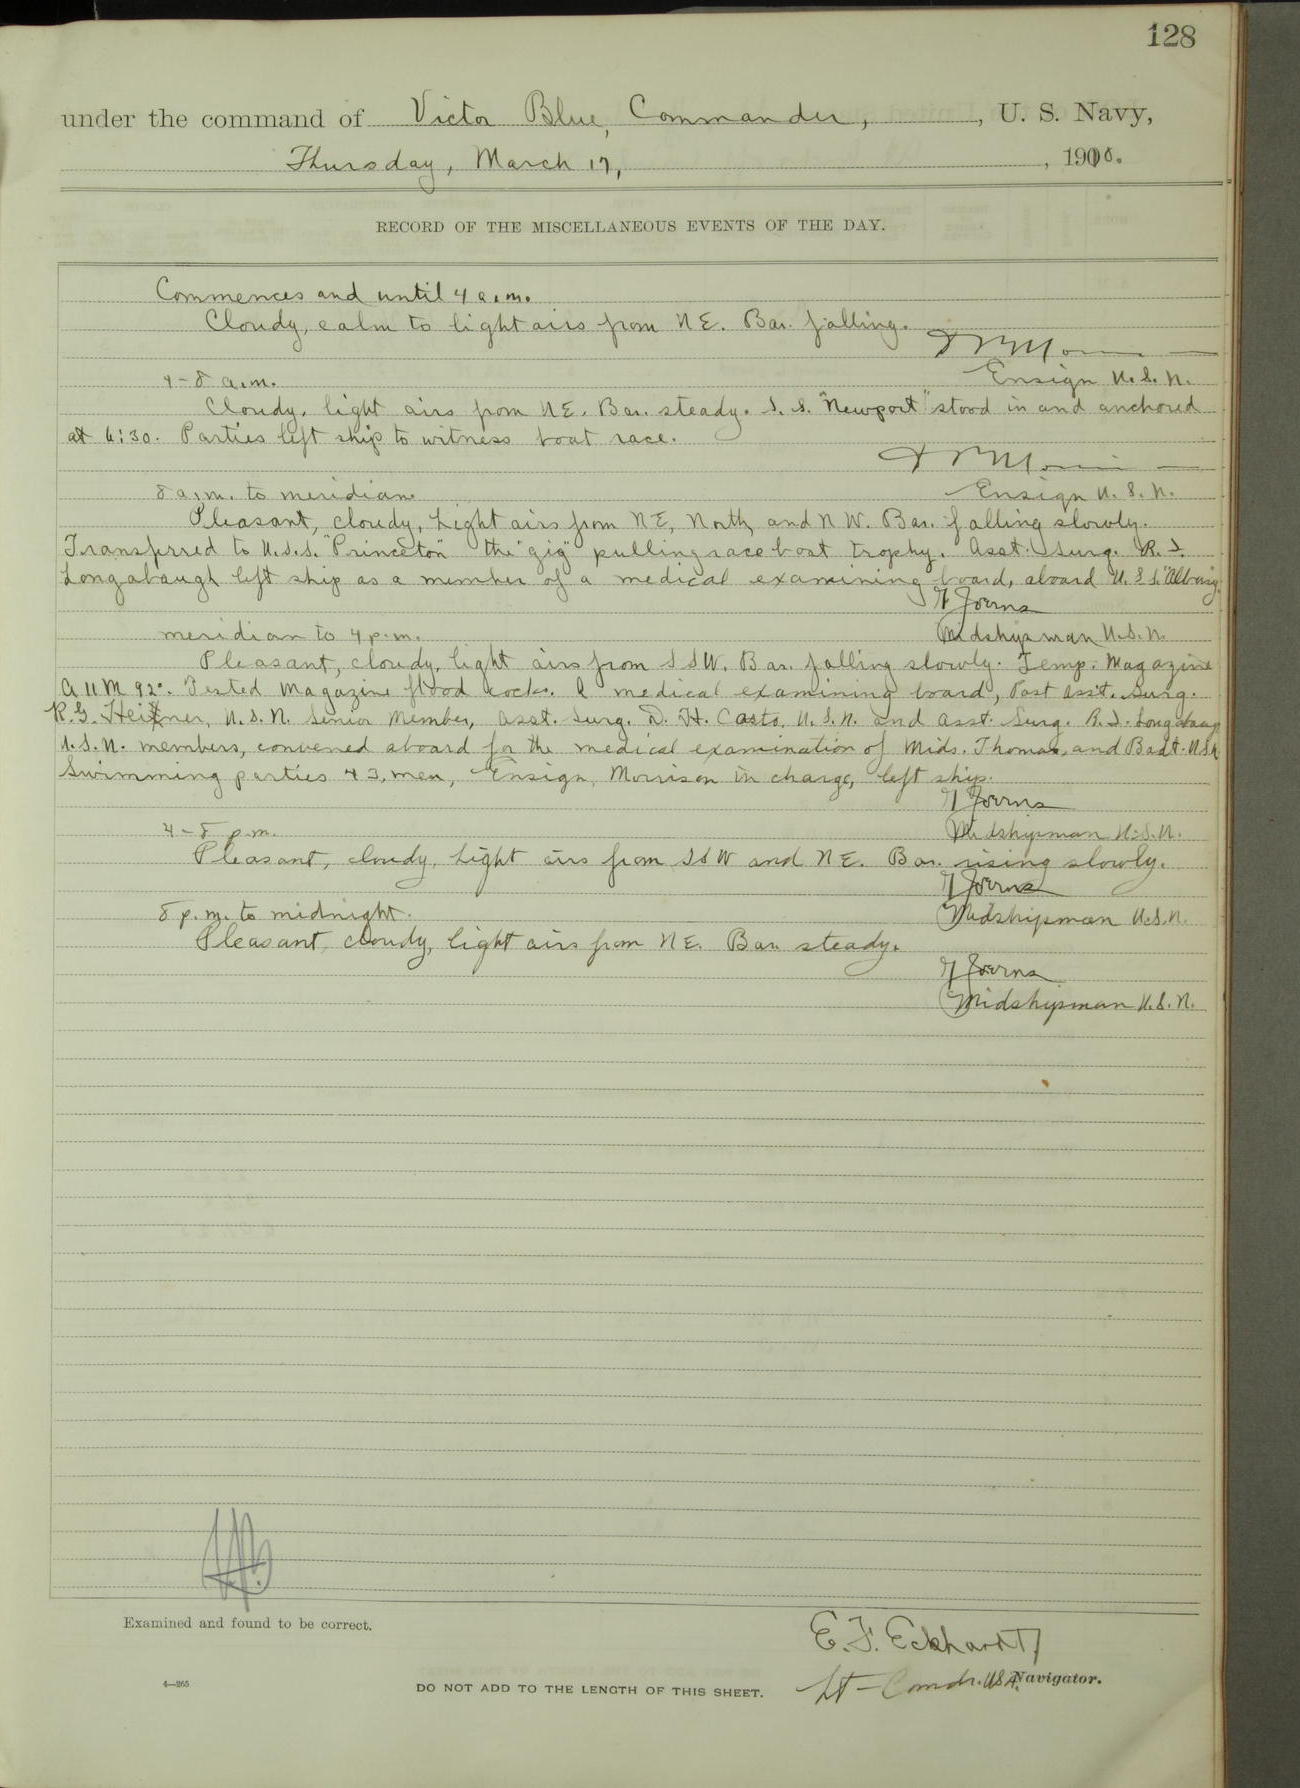 128
under the command of Victor Blue, Commander, , U. S. Navy,
Thursday, March 17, , 1910.
RECORD OF THE MISCELLANEOUS EVENTS OF THE DAY.
Commences and until 4 a.m.
Cloudy, calm to light airs from NE. Bar. falling.
Ensign U.S.N.
4-8 a.m.
Cloudy, light airs from NE. Bar. steady. S. S. "Newport" stood in and anchored
at 6:30. Parties left ship to witness boat race.
8 a.m. to meridian.
Ensign U.S.N.
Pleasant, cloudy, Light airs from NE, North, and NW. Bar. falling slowly.
Transferred to U.S.S. "Princeton" the "gig" pulling race boat trophy. Asst. Surg. R. I.
Longabaugh left ship as a member of a medical examining board, aboard U.S.S. "Albany".
Joerns
meridian to 4 p.m.
Midshipman U.S.N.
Pleasant, cloudy, light airs from SSW. Bar. falling slowly. Temp. Magazine
A 11 M 92°. Tested Magazine flood cocks. A medical examining board, Past Asst. Surg.
R. G. Heiner, U.S.N. Senior Member, Asst. Surg. D. H. Casto, U.S.N. and Asst. Surg. R. I. Longabaugh
U.S.N. members, convened aboard for the medical examination of Mids. Thomas, and Badt. USN
Swimming parties 43 men, Ensign Morrison in charge, left ship.
Joerns
4-8 p.m.
Midshipman U.S.N.
Pleasant, cloudy, Light airs from SSW and NE. Bar. rising slowly.
Joerns
8 p.m. to midnight.
Midshipman U.S.N.
Pleasant, cloudy, light airs from NE. Bar. steady.
Joerns
Midshipman U.S.N.
Examined and found to be correct.
E. F. Eckhardt
Lt-Comdr. USN. Navigator.
4—265
DO NOT ADD TO THE LENGTH OF THIS SHEET.